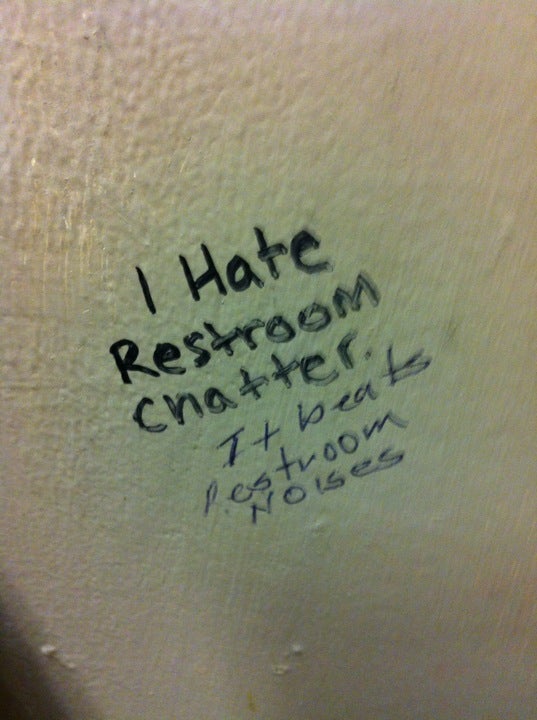 I Hate
Restroom
Chatter.
It beats
Restroom
Noises